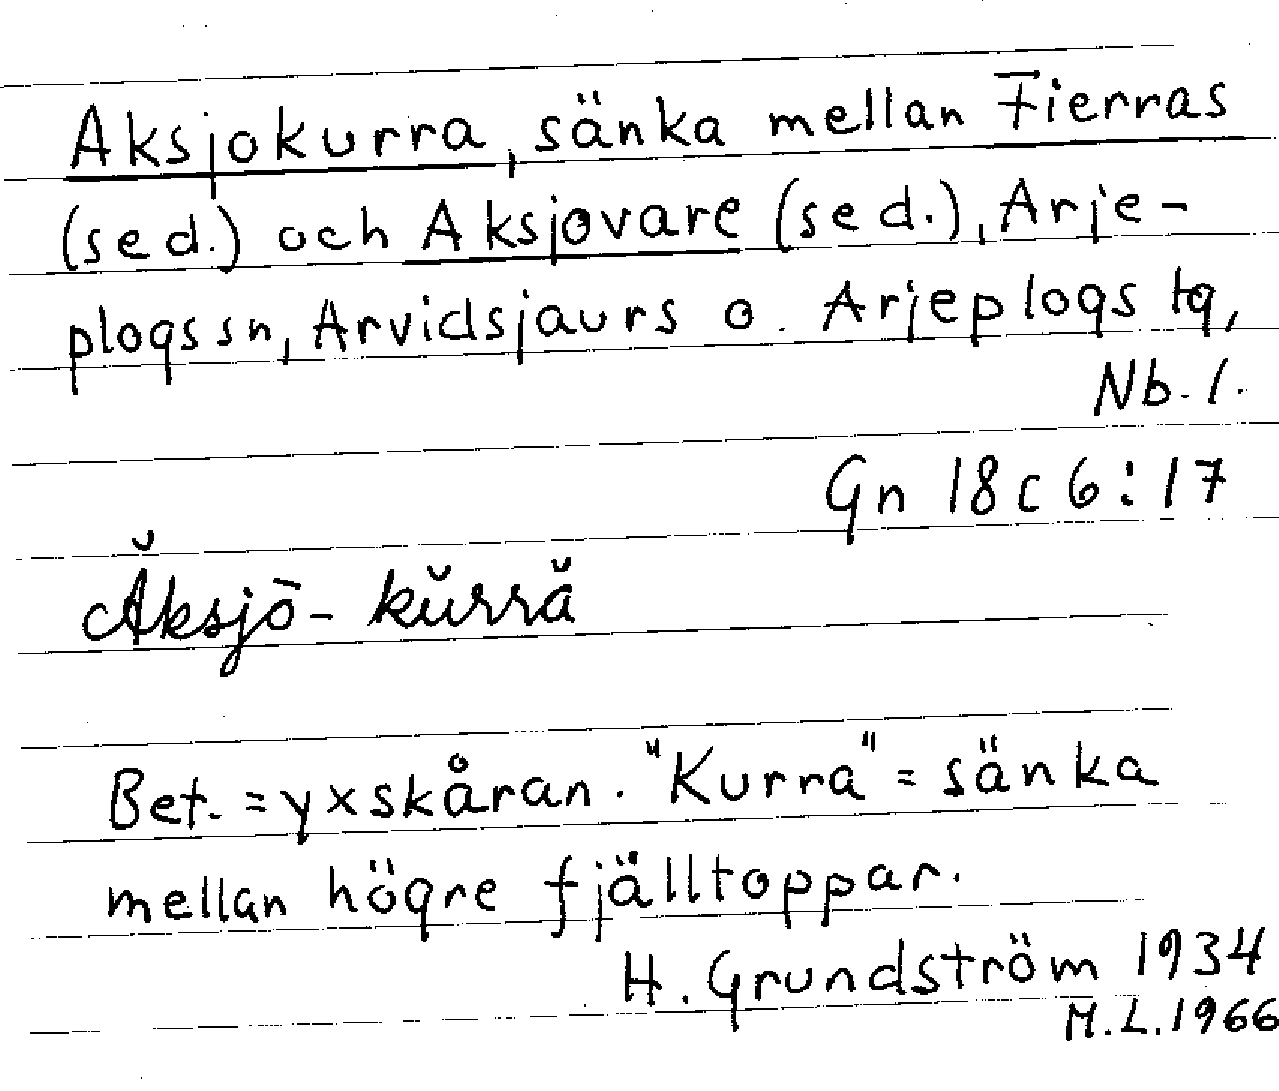 Aksjokurra, sänka mellan Fierras
(sed.) och Aksjovare (sed.), Arje-
plogs sn, Arvidsjaurs o. Arjeplogs tg,
Nb. l.
Gn 18 c 6:17
Ăksjō-kŭrră
Bet. = yxskåran. "Kurra" = sänka
mellan högre fjälltoppar.
H. Grundström 1934
M.L. 1966